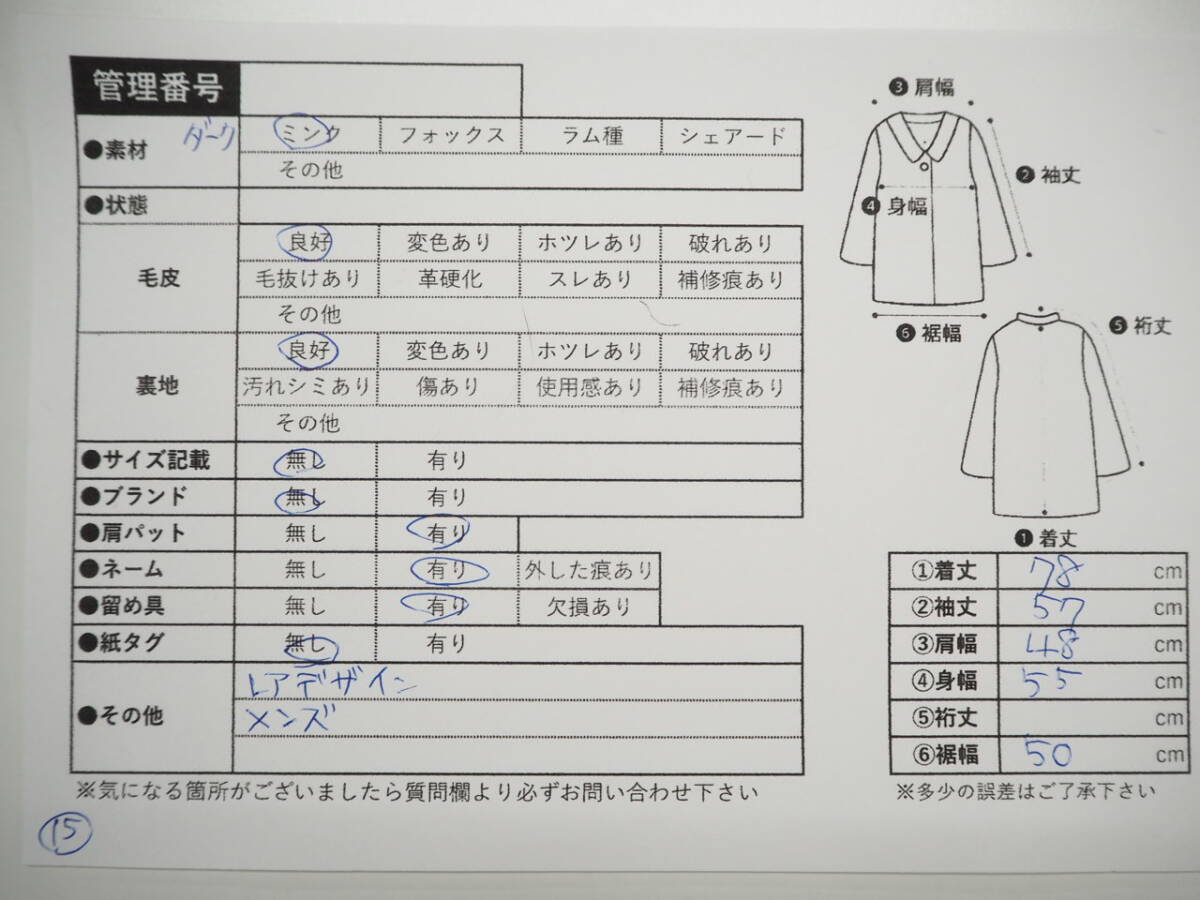 管理番号
●素材 ダーク ミンク フォックス ラム種 シェアード
その他
●状態
毛皮 良好 変色あり ホツレあり 破れあり
毛抜けあり 革硬化 スレあり 補修痕あり
その他
裏地 良好 変色あり ホツレあり 破れあり
汚れシミあり 傷あり 使用感あり 補修痕あり
その他
●サイズ記載 無し 有り
●ブランド 無し 有り
●肩パット 無し 有り
●ネーム 無し 有り 外した痕あり
●留め具 無し 有り 欠損あり
●紙タグ 無し 有り
●その他 レアデザイン
メンズ
※気になる箇所がございましたら質問欄より必ずお問い合わせ下さい
⑮
❸ 肩幅
❷ 袖丈
❹ 身幅
❻ 裾幅
❺ 裄丈
❶ 着丈
①着丈 78 cm
②袖丈 57 cm
③肩幅 48 cm
④身幅 55 cm
⑤裄丈 cm
⑥裾幅 50 cm
※多少の誤差はご了承下さい